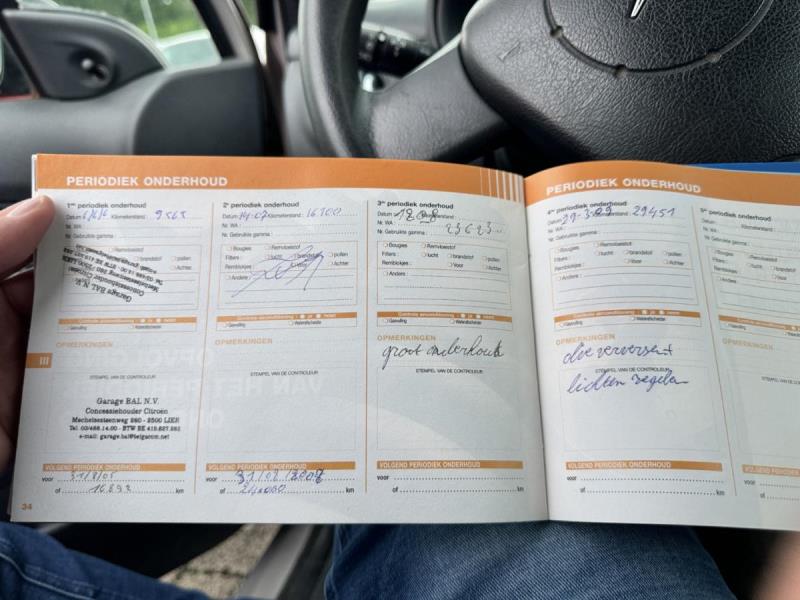 PERIODIEK ONDERHOUD
1ste periodiek onderhoud
Datum 6/6/6 Kilometerstand : 9565
Nr. WA :
Nr. Gebruikte gamma :
Bougies Remvloeistof
Filters : lucht brandstof pollen
Remblokjes : Voor Achter
Andere :
Controle airconditioning : ja neen
Gasvulling Waterafscheider
OPMERKINGEN
STEMPEL VAN DE CONTROLEUR
Garage BAL N.V.
Concessiehouder Citroën
Mechelsesteenweg 260 - 2500 LIER
e-mail: garage.bal@belgacom.net
VOLGEND PERIODIEK ONDERHOUD
voor
of km
III
34
2e periodiek onderhoud
Datum 14-07 Kilometerstand : 16700
Nr. WA :
Nr. Gebruikte gamma :
Bougies Remvloeistof
Filters : lucht brandstof pollen
Remblokjes : Voor Achter
Andere :
Controle airconditioning : ja neen
Gasvulling Waterafscheider
OPMERKINGEN
STEMPEL VAN DE CONTROLEUR
VOLGEND PERIODIEK ONDERHOUD
voor 31/08/2007
of km
3e periodiek onderhoud
Datum Kilometerstand :
Nr. WA :
Nr. Gebruikte gamma :
Bougies Remvloeistof
Filters : lucht brandstof pollen
Remblokjes : Voor Achter
Andere :
Controle airconditioning : ja neen
Gasvulling Waterafscheider
OPMERKINGEN
groot onderhoud
STEMPEL VAN DE CONTROLEUR
VOLGEND PERIODIEK ONDERHOUD
voor
of km
PERIODIEK ONDERHOUD
4e periodiek onderhoud
Datum Kilometerstand : 29451
Nr. WA :
Nr. Gebruikte gamma :
Bougies Remvloeistof
Filters : lucht brandstof pollen
Remblokjes : Voor Achter
Andere :
Controle airconditioning : ja neen
Gasvulling Waterafscheider
OPMERKINGEN
olie ververst
STEMPEL VAN DE CONTROLEUR
lichten regelen
VOLGEND PERIODIEK ONDERHOUD
voor
of km
5e periodiek onderhoud
Datum
Nr. WA :
Nr. Gebruikte gamma :
Bougies
Filters :
Remblokjes :
Andere :
Gasvulling
OPMERKINGEN
voor
of